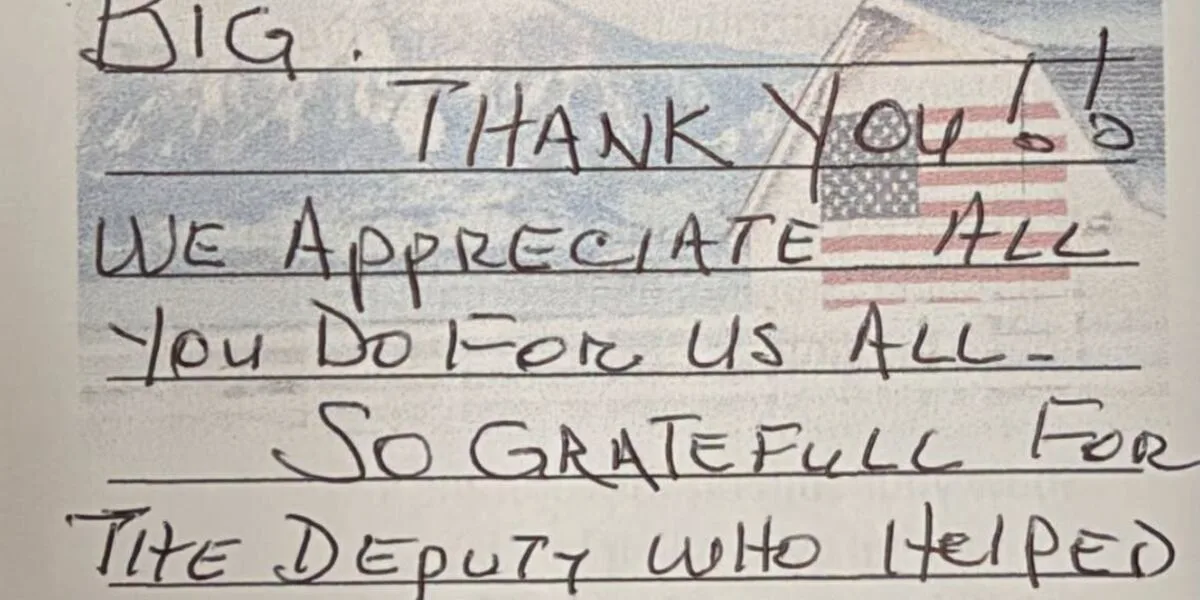 BIG.
THANK YOU!!
WE APPRECIATE ALL
YOU DO FOR US ALL-
SO GRATEFULL FOR
THE DEPUTY WHO HELPED